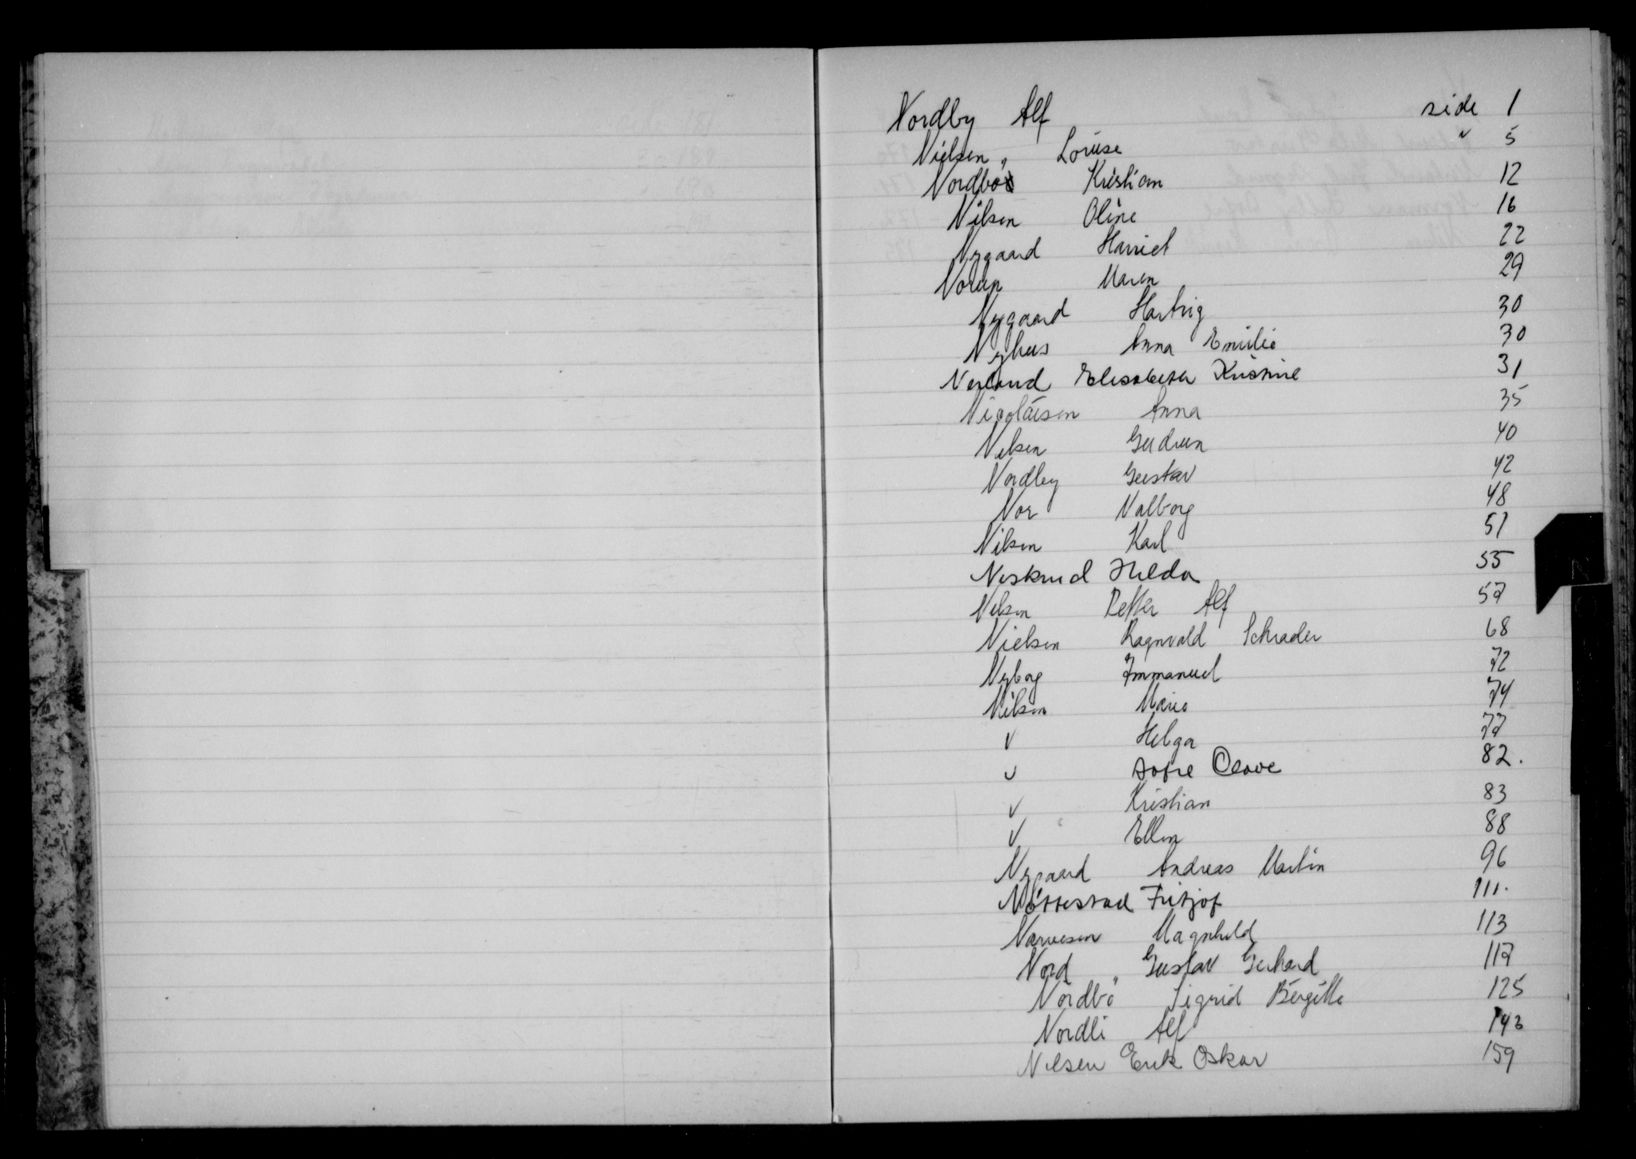 Nordby Alf side 1
Nielsen, Lovise " 5
Nordbö Kristian 12
Nilsen Oline 16
Nygaard Harriet 22
Norup Maren 29
Nygaard Hartvig 30
Nyhus Anna Emilie 30
Nerland Elisabeth Kristine 31
Nicolaisen Anna 35
Nilsen Gudrun 40
Nordby Gustav 42
Nor Valborg 48
Nilsen Karl 51
Neskrud Hilda 55
Nilsen Petter Alf 57
Nielsen Ragnvald Schrader 68
Nyborg Immanuel 72
Nilsen Marie 74
v Helga 77
v Sofie Clave 82.
v Kristian 83
v Ellen 88
Nygaard Andreas Martin 96
Nöttestad Fritjof 111.
Narvesen Magnhild 113
Nord Gustav Gerhard 117
Nordbö Sigrid Bergitte 125
Nordli Alf 143
Nilsen Erik Oskar 159